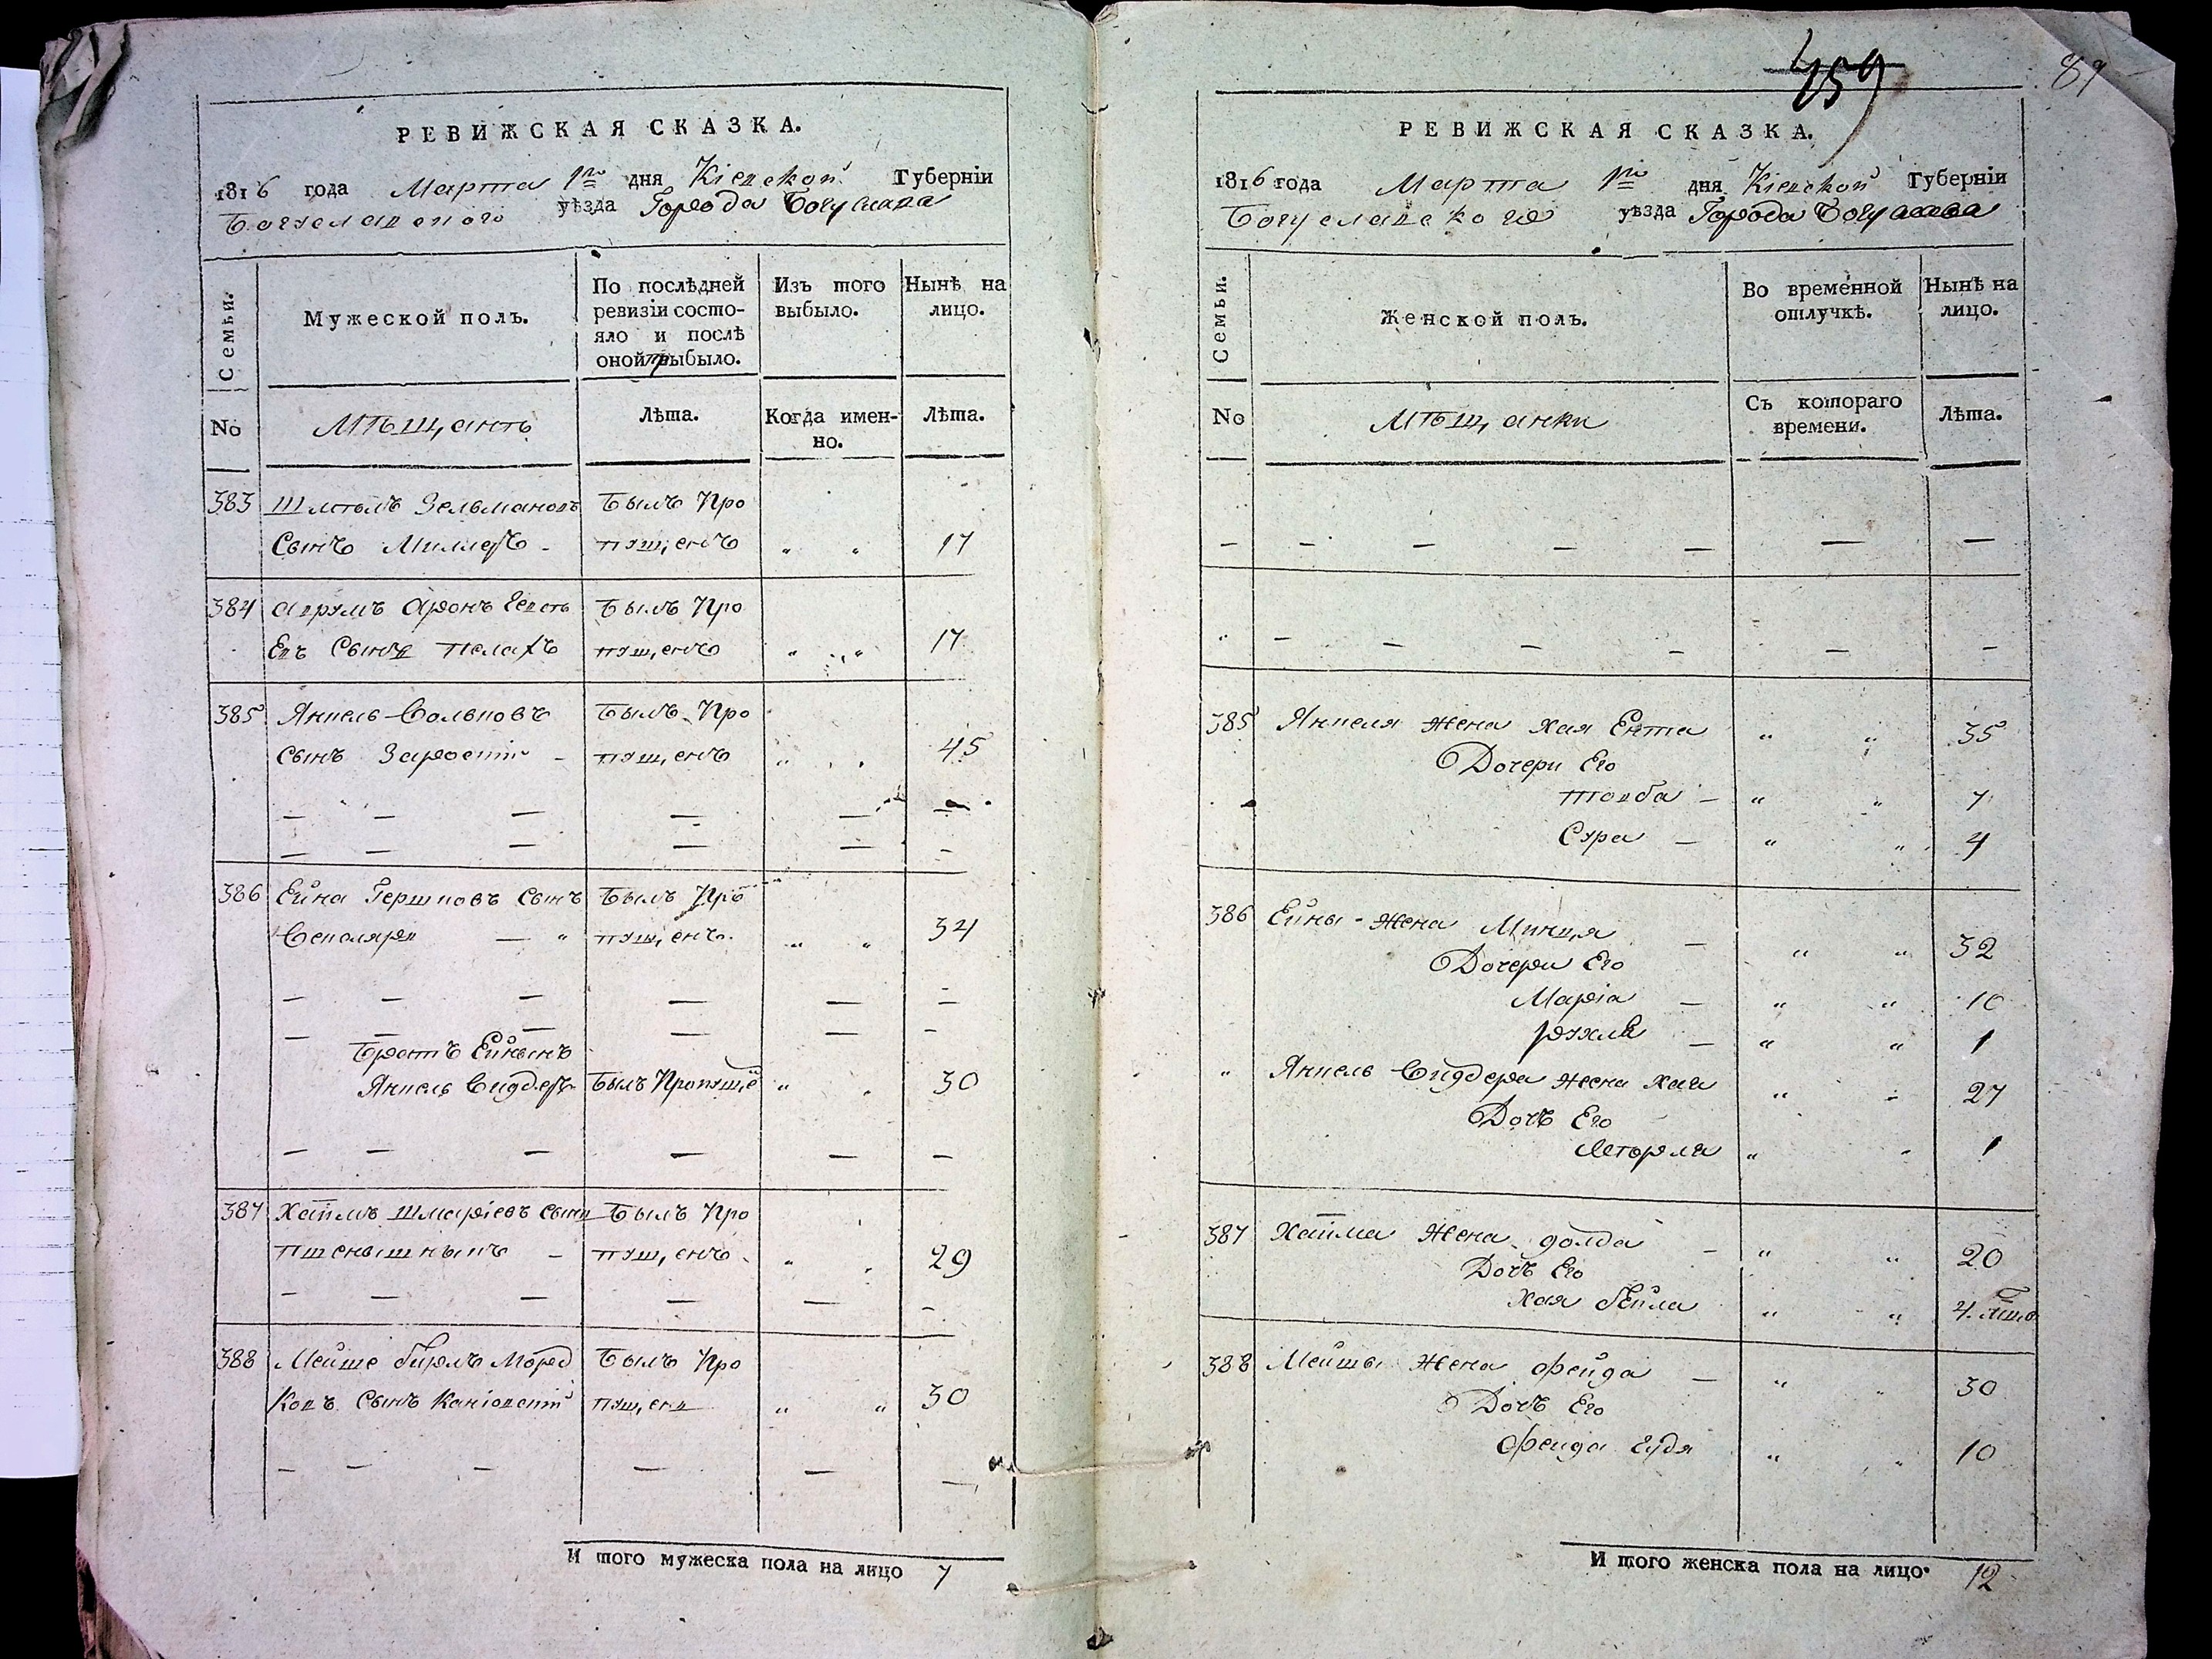 РЕВИЖСКАЯ СКАЗКА.
1816 года Марта 1го дня Кіевской Губерніи
Богуславского уѣзда Города Богуслава
Семьи.
Мужеской полъ.
По послѣдней ревизіи состо-
яло и послѣ
оной прибыло.
Изъ того выбыло.
Нынѣ на лицо.
No
Мѣщанъ
Лѣта.
Когда имен-
но.
Лѣта.
383 Зельмановъ Былъ Про
Сынъ Миллеръ - пущенъ " " 17
384 Аврумъ Аронъ Былъ Про
Сынъ пущенъ " " 17
385 Янкель Волковъ Былъ Про
сынъ - пущенъ " " 45
386 Ейна Гершковъ Сынъ Былъ Про
— " пущенъ. " " 34
Братъ Ейнынъ
Янкель Былъ Пропуще " " 30
387 Хаймъ Шмаріевъ сынъ Былъ Про
- пущенъ " " 29
388 Мейше Беръ Морд Былъ Про
Ковъ Сынъ Каніовскій пущен " " 30
И того мужеска пола на лицо 7
459
89
РЕВИЖСКАЯ СКАЗКА.
1816 года Марта 1го дня Кіевской Губерніи
Богуславского уѣзда Города Богуслава
Семьи.
Женской полъ.
Во временной
отлучкѣ.
Нынѣ на
лицо.
No
Мѣщанки
Съ котораго
времени.
Лѣта.
385 Янкеля жена Хая Ента " " 35
Дочери Его
Товба — " " 7
Сура — " " 4
386 Ейны - жена Минця — " " 32
Дочери Его
Маріа — " " 10
Рухля — " " 1
" Янкель жена Хая " " 27
Дочь Его
" " 1
387 Хайма Жена Голда — " " 20
Дочь Его
Хая Бейла " " 4
388 Мейшы Жена Фейда — " " 30
Дочь Его
Фейда " " 10
И того женска пола на лицо. 12